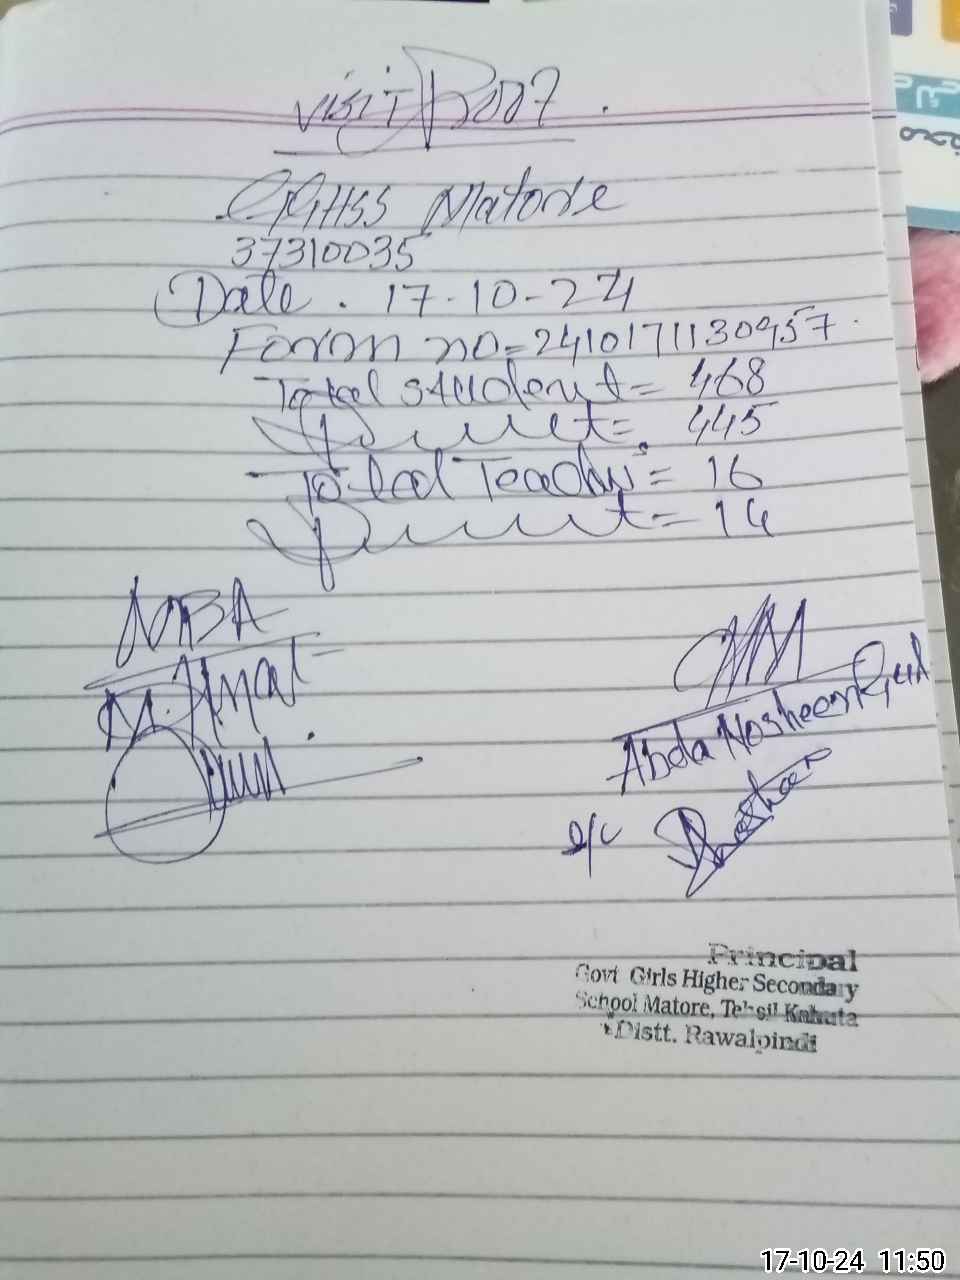 visit Proof.
GGHSS Matore
37310035
Date. 17-10-24
Form no=2410171130957.
Total student = 468
Present = 445
Total Teacher = 16
Present = 14
M. Ajmal
Abda Nosheen Gul
Nosheen
Principal
Govt Girls Higher Secondary
School Matore, Tehsil Kahuta
Distt. Rawalpindi
17-10-24 11:50